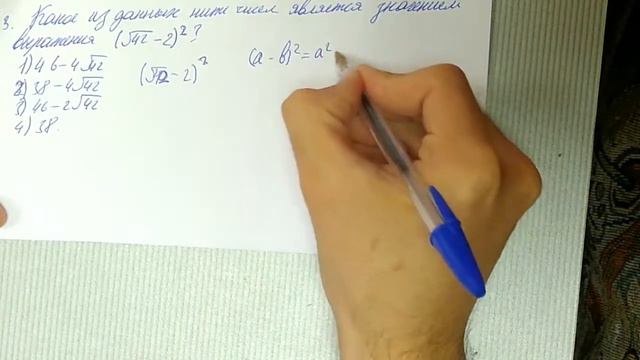 3. Какое из данных ниже чисел является значением
выражения (√42 – 2)² ?
1) 46 – 4√42
2) 38 – 4√42
3) 46 – 2√42
4) 38.
(√42 – 2)²
(a – b)² = a²